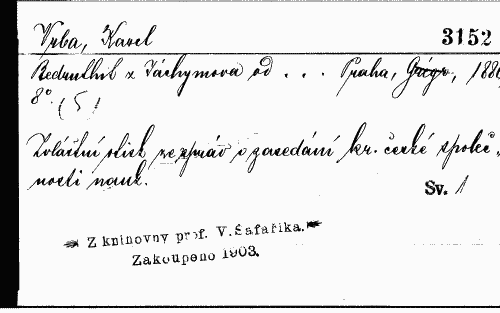 Vrba, Karel
3152
z Jáchymova od . . . Praha, Grégr, 1886
8° (5)
Zvláštní otisk ze zpráv o zasedání kr. české společ-
nosti nauk.
Sv. 1
Z knihovny prof. V. Šafaříka.
Zakoupeno 1903.